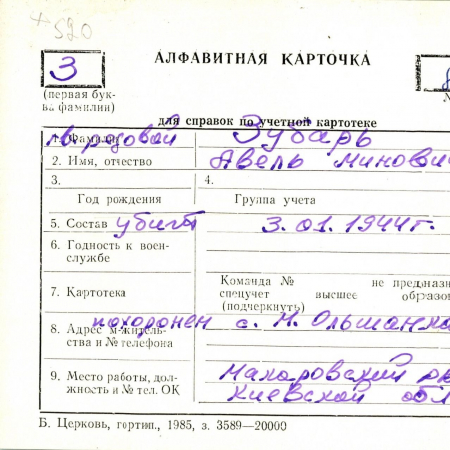 + 520
АЛФАВИТНАЯ КАРТОЧКА
З
(первая бук-
ва фамилии)
для справок по учетной картотеке
1. Фамилия рядовой Зубарь
2. Имя, отчество Авель Минови
3.
4.
Год рождения
Группа учета
5. Состав убит 3.01.1944г.
6. Годность к воен-
службе
7. Картотека
Команда № не предназн
спецучет высшее образов
(подчеркнуть)
8. Адрес житель-
ства и № телефона
похоронен с. М. Ольшанка
9. Место работы, дол-
жность и № тел. ОК
Макаровский
Киевской обл
Б. Церковь, гортип., 1985, з. 3589—20000